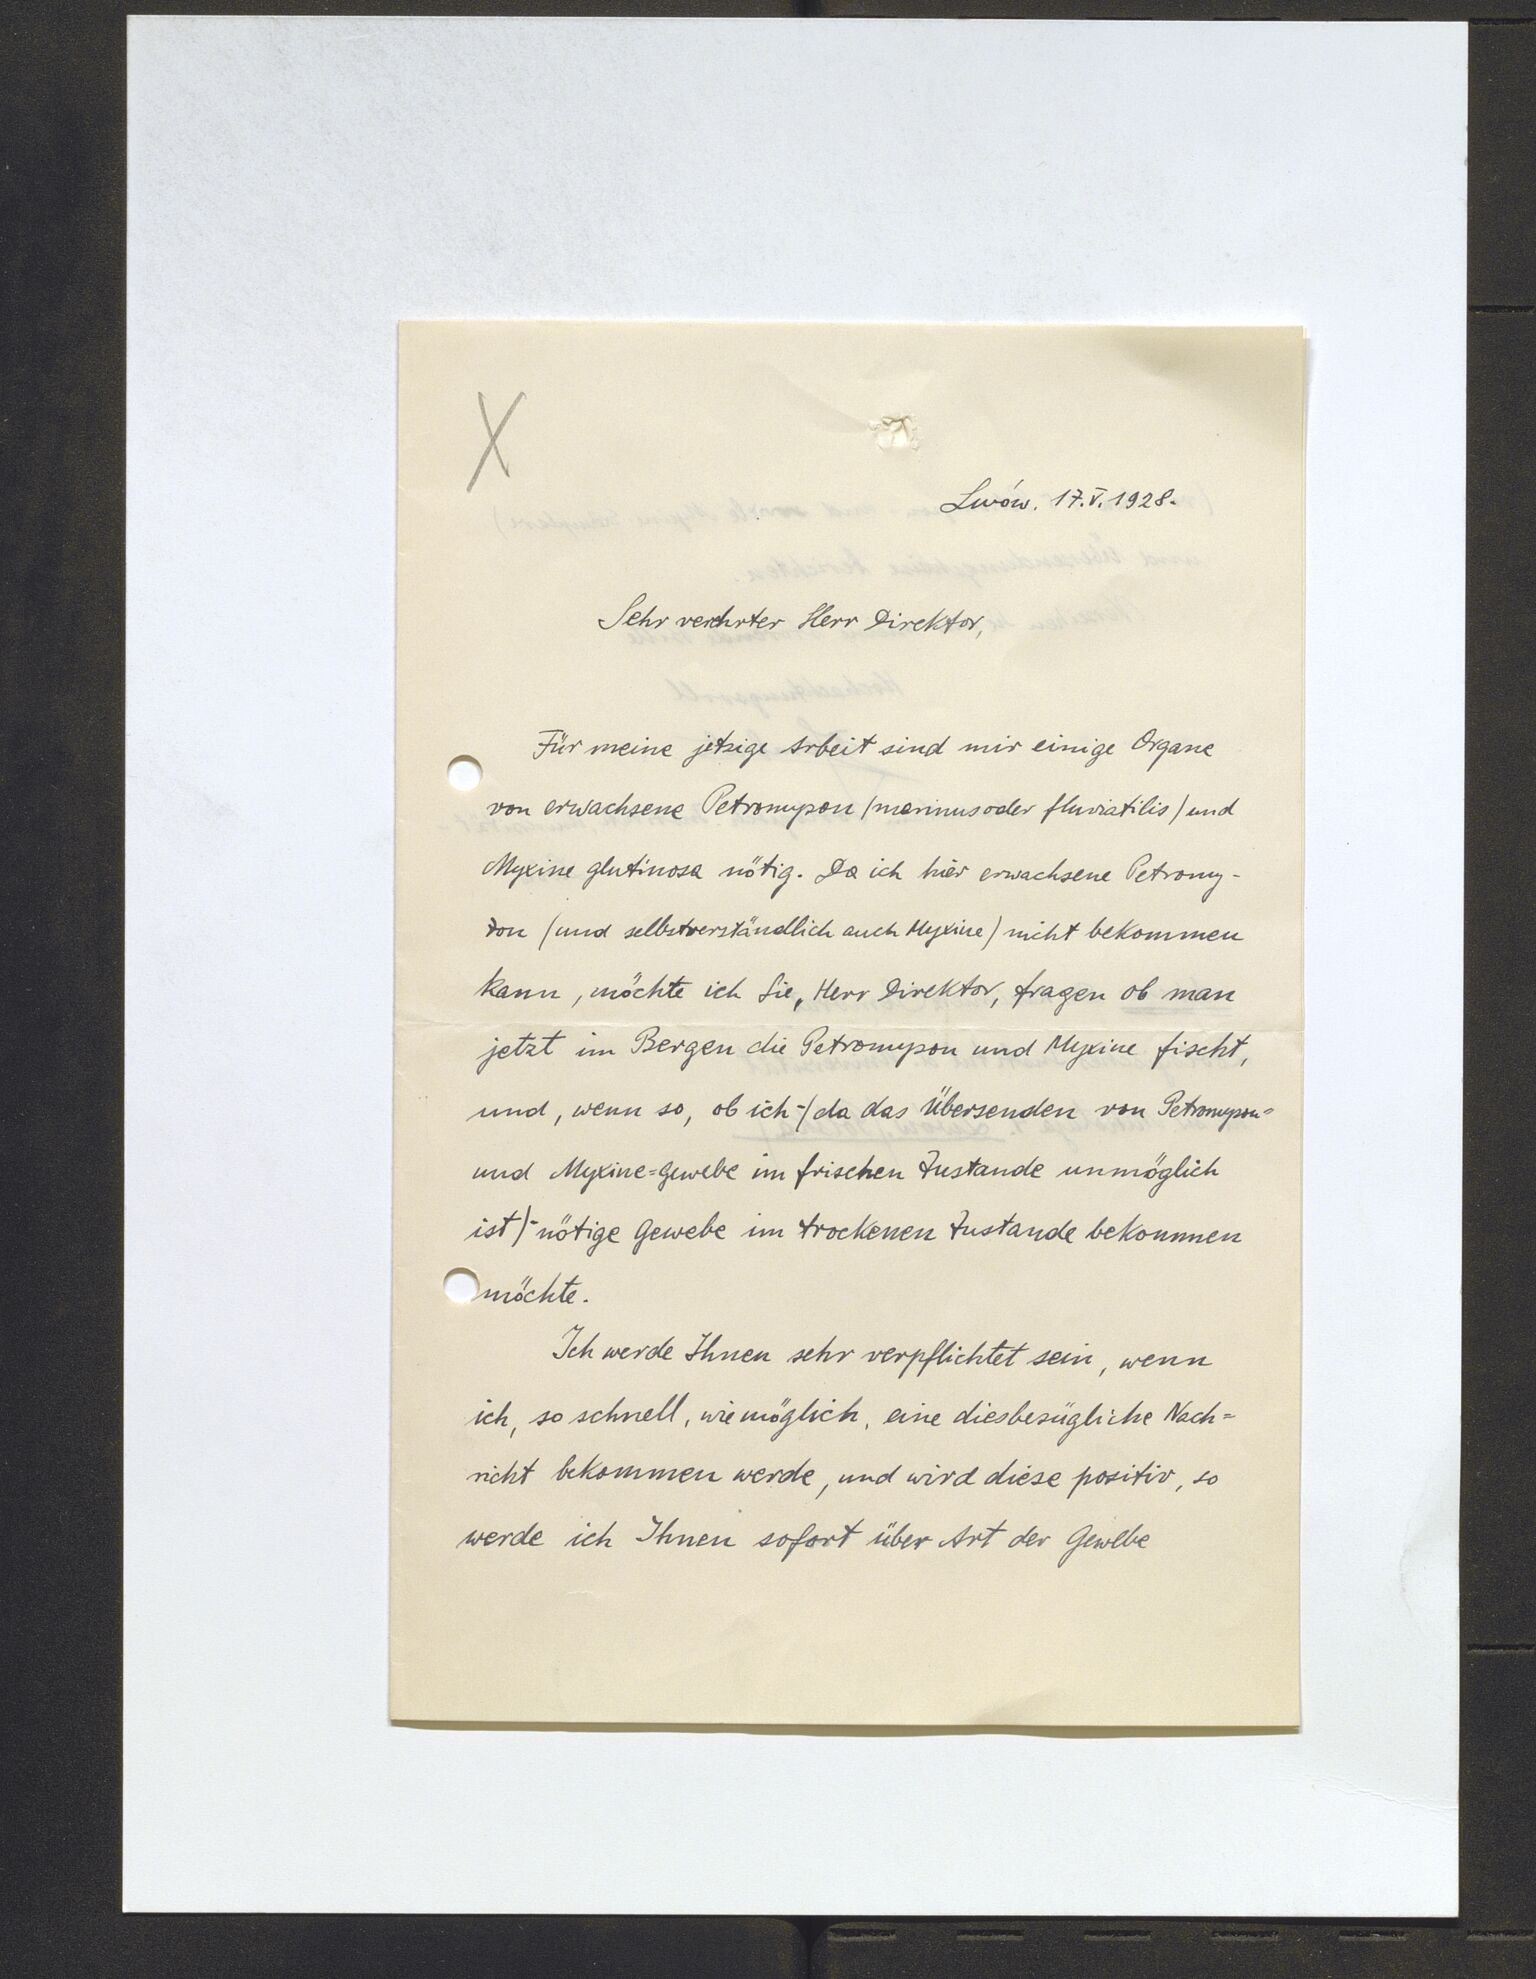 X
Lwów. 17.V.1928.
Sehr verehrter Herr Direktor,
Für meine jetzige Arbeit sind mir einige Organe
von erwachsene Petromyzon (marinus oder fluviatilis) und
Myxine glutinosa nötig. Da ich hier erwachsene Petromy-
zon (und selbstverständlich auch Myxine) nicht bekommen
kann, möchte ich Sie, Herr Direktor, fragen ob man
jetzt im Bergen die Petromyzon und Myxine fischt,
und, wenn so, ob ich -(da das Übersenden von Petromyzon=
und Myxine=Gewebe im frischen Zustande unmöglich
ist)- nötige Gewebe im trockenen Zustande bekommen
möchte.
Ich werde Ihnen sehr verpflichtet sein, wenn
ich, so schnell, wie möglich, eine diesbezügliche Nach=
richt bekommen werde, und wird diese positiv, so
werde ich Ihnen sofort über Art der Gewebe